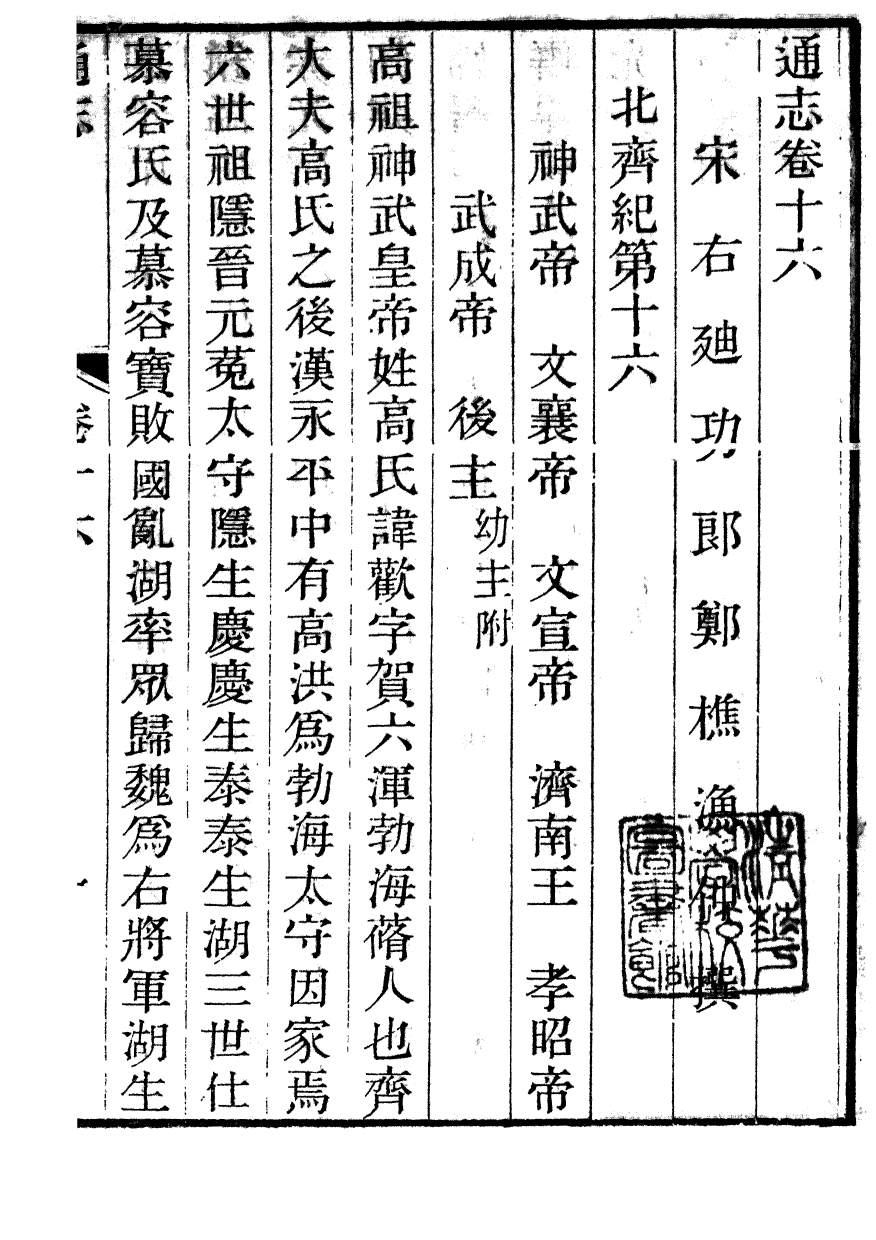 通志卷十六
宋右迪功郎鄭樵漁仲撰
北齊紀第十六
神武帝 文襄帝 文宣帝 濟南王 孝昭帝
武成帝 後主幼主附
高祖神武皇帝姓高氏諱歡字賀六渾勃海蓨人也齊
大夫高氏之後漢永平中有高洪爲勃海太守因家焉
六世祖隱晉元菟太守隱生慶慶生泰泰生湖三世仕
慕容氏及慕容寶敗國亂湖率眾歸魏爲右將軍湖生
通志 卷十六 一